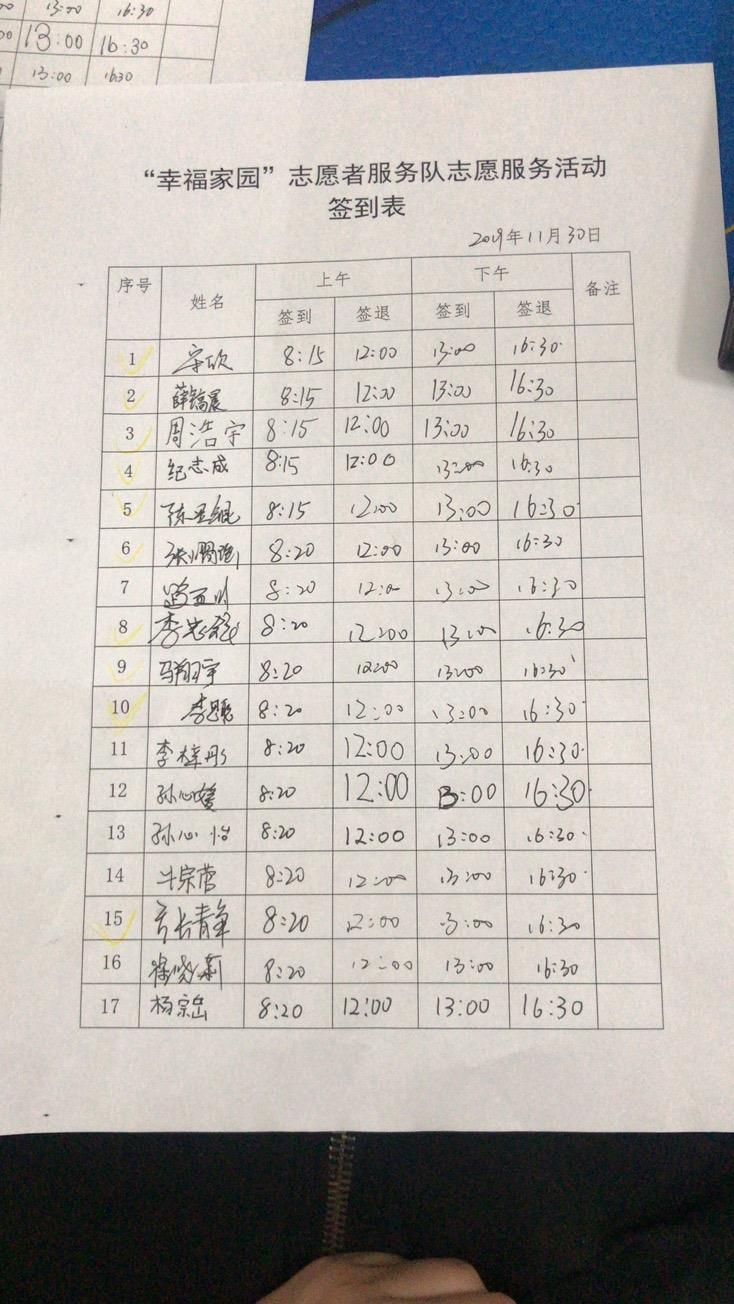 13:00 16:30
00 13:00 16:30
13:00 1630
“幸福家园”志愿者服务队志愿服务活动
签到表
2019年11月30日
序号 姓名 上午 下午 备注
签到 签退 签到 签退
1 8:15 12:00 13:00 16:30
2 8:15 12:00 13:00 16:30
3 周浩宇 8:15 12:00 13:00 16:30
4 纪志成 8:15 12:00 13:00 16:30
5 8:15 12:00 13:00 16:30
6 8:20 12:00 13:00 16:30
7 8:20 12:00 13:00 16:30
8 8:20 12:00 13:00 16:30
9 马翔宇 8:20 12:00 13:00 16:30
10 8:20 12:00 13:00 16:30
11 李梓彤 8:20 12:00 13:00 16:30
12 孙心媛 8:20 12:00 13:00 16:30
13 孙心怡 8:20 12:00 13:00 16:30
14 牛宗蕾 8:20 12:00 13:00 16:30
15 8:20 12:00 13:00 16:30
16 8:20 12:00 13:00 16:30
17 杨宗岳 8:20 12:00 13:00 16:30